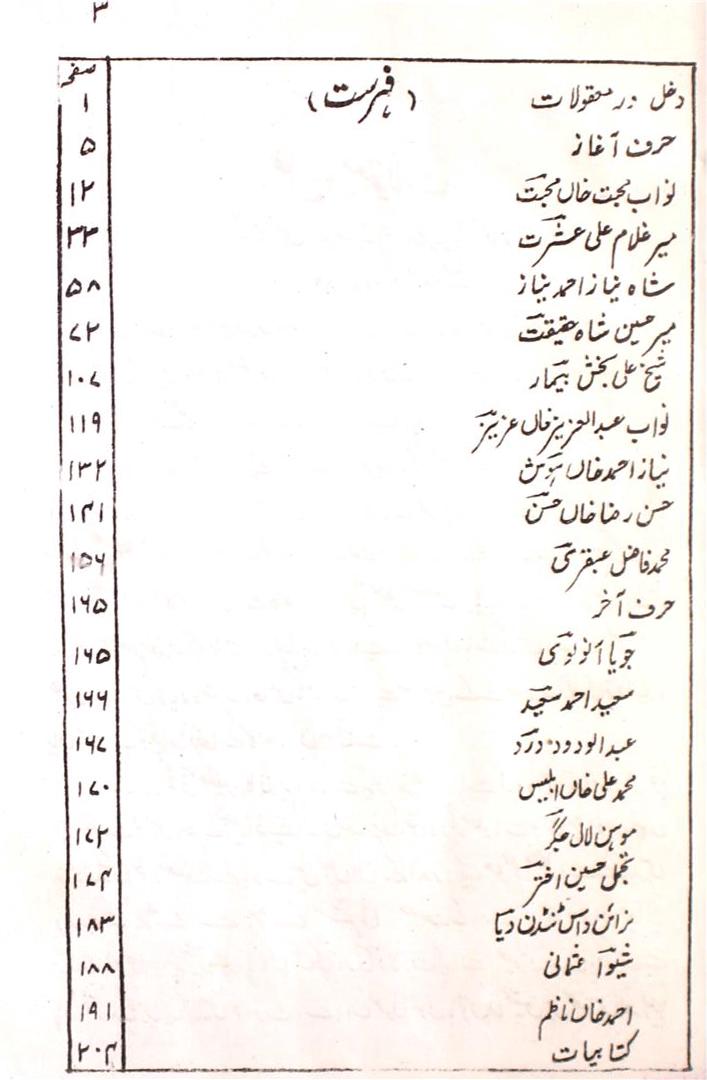 ۳
(فہرست) صفحہ
دخل در معقولات ۱
حرف آغاز ۵
نواب محبت خاں محبتؔ ۱۲
میر غلام علی عشرتؔ ۳۳
شاہ نیاز احمد نیازؔ ۵۸
میر حسین شاہ حقیقتؔ ۷۲
شیخ علی بخش بیمارؔ ۱۰۷
نواب عبدالعزیز خاں عزیزؔ ۱۱۹
نیاز احمد خاں ہوشؔ ۱۳۲
حسن رضا خاں حسنؔ ۱۴۱
محمد فاضل عبقریؔ ۱۵۶
حرف آخر ۱۶۵
جویاؔ آنولوی ۱۶۵
سعید احمد سعیدؔ ۱۶۶
عبدالودود دردؔ ۱۶۷
محمد علی خاں ابلیسؔ ۱۷۰
موہن لال جگرؔ ۱۷۲
تجمل حسین اخترؔ ۱۷۴
نرائن داس ٹنڈن دیاؔ ۱۸۳
شیواؔ عثمانی ۱۸۸
احمد خاں ناظم ۱۹۱
کتابیات ۲۰۴